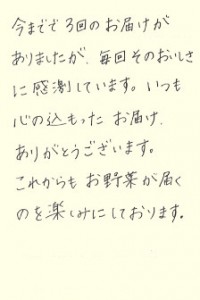 今までで3回のお届けが
ありましたが、毎回そのおいしさ
に感激しています。いつも
心の込もったお届け、
ありがとうございます。
これからもお野菜が届く
のを楽しみにしております。